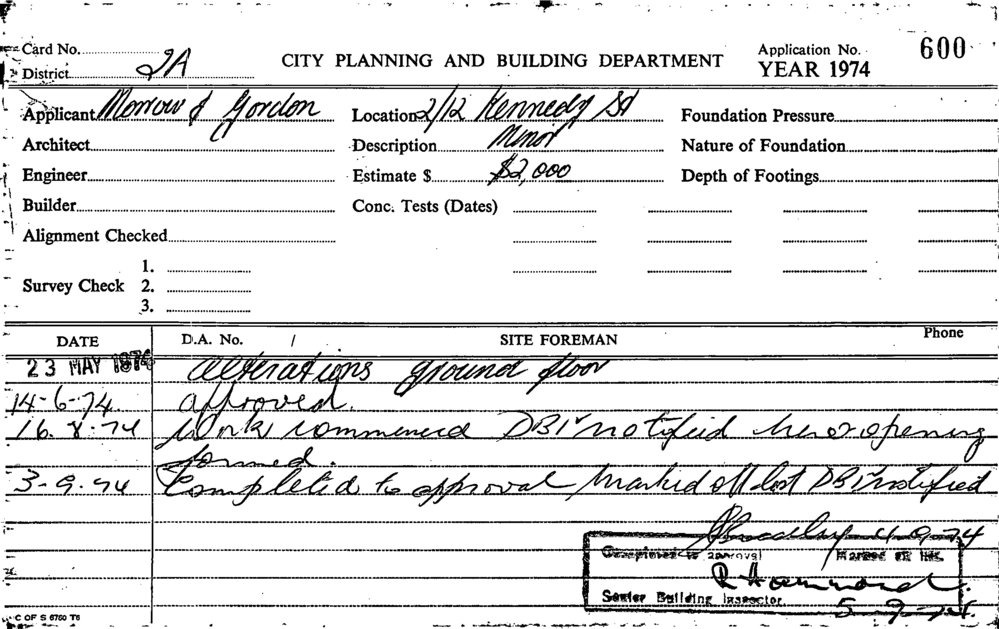 Card No.
District 2A
CITY PLANNING AND BUILDING DEPARTMENT
Application No. 600
YEAR 1974
Applicant Morrow & Gordon
Location 2/12 Kennedy St
Foundation Pressure
Architect
Description Minor
Nature of Foundation
Engineer
Estimate $ $2,000
Depth of Footings
Builder
Conc. Tests (Dates)
Alignment Checked
Survey Check 1.
2.
3.
DATE D.A. No. / SITE FOREMAN Phone
23 MAY 1974 alterations ground floor
14-6-74 approved.
16.8.74 Work commenced DBI notified new opening
formed.
3-9-74 Completed to approval Marked off list DBI notified
4-9-74
Completed to approval Marked off list
R Hammond.
Senior Building Inspector. 5-9-74.
C OF S 6750 T6